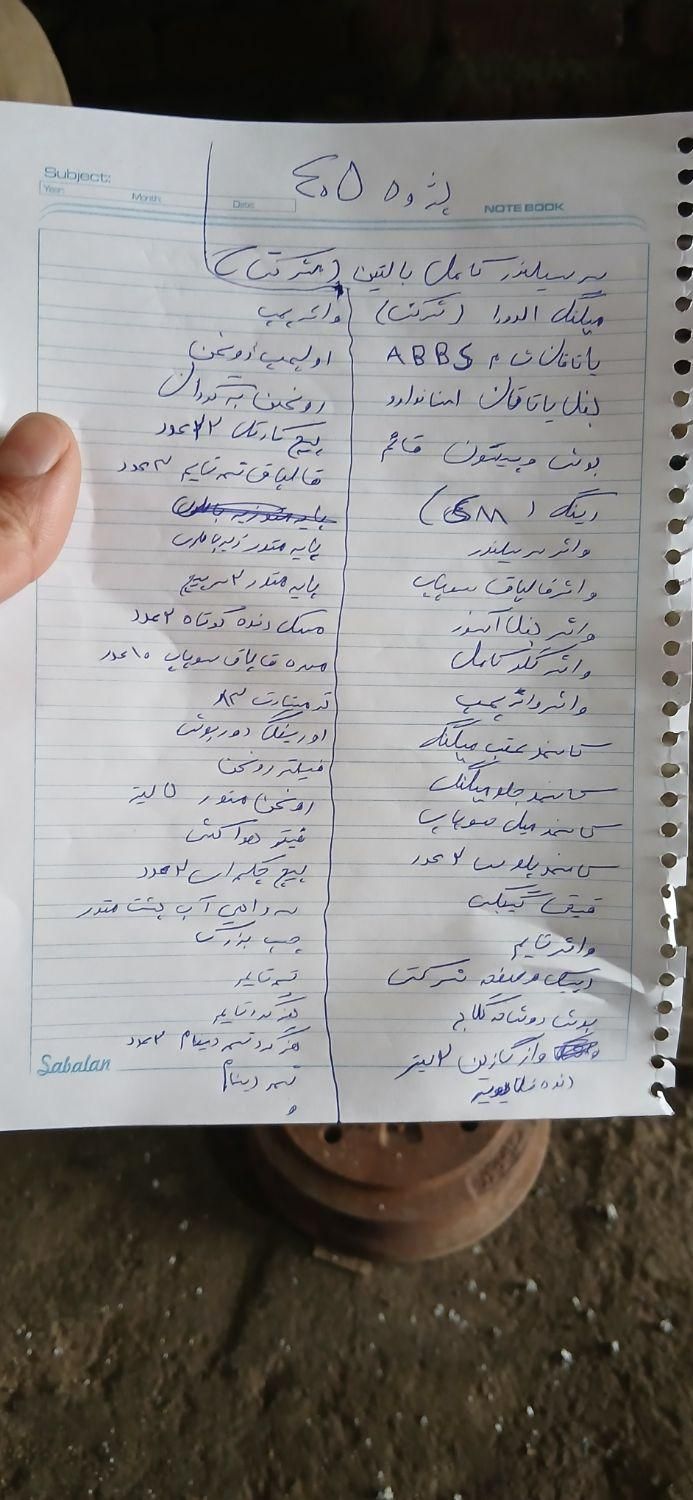 Subject:
Year: Month: Date:
NOTE BOOK
پژو ۴۰۵
سر سیلندر کامل بالتین (شرکت)
میلنگ الدورا (شرکت)
یاتاقان ثابت م ABBS
بغل یاتاقان استاندارد
بوش و پیستون قائم
رینگ (GM)
واشر سر سیلندر
واشر قالپاق سوپاپ
واشر بغل اگزوز
واشر کامل
واشر واتر پمپ
کاسنمد عقب میلنگ
کاسنمد جلو میلنگ
کاسنمد میل سوپاپ
کاسنمد پلوس ۲ عدد
واشر تایم
دیسک و صفحه شرکتی
بوش دوشاخه کلاچ
واز گازین ۲ لیتر
دنده
واتر پمپ
اویل پمپ روغن
روغن به گردان
پیچ کارتل ۲۲ عدد
قالپاق تسمه تایم ۳ عدد
پایه متور زیر باطری
پایه متور ۲ سر پیچ
میل دنده کوتاه ۲ عدد
مهره قالپاق سوپاپ ۱۰ عدد
اورینگ دور بوش
فیلتر روغن
روغن متور ۵ لیتر
فیلتر هواکش
پیچ چکه ای ۲ عدد
سه راهی آب پشت متور
چسب بزرگ
تسمه تایم
هرز گرد تایم
هرز گرد تسمه دینام ۲ عدد
تسمه دینام
و
Sabalan